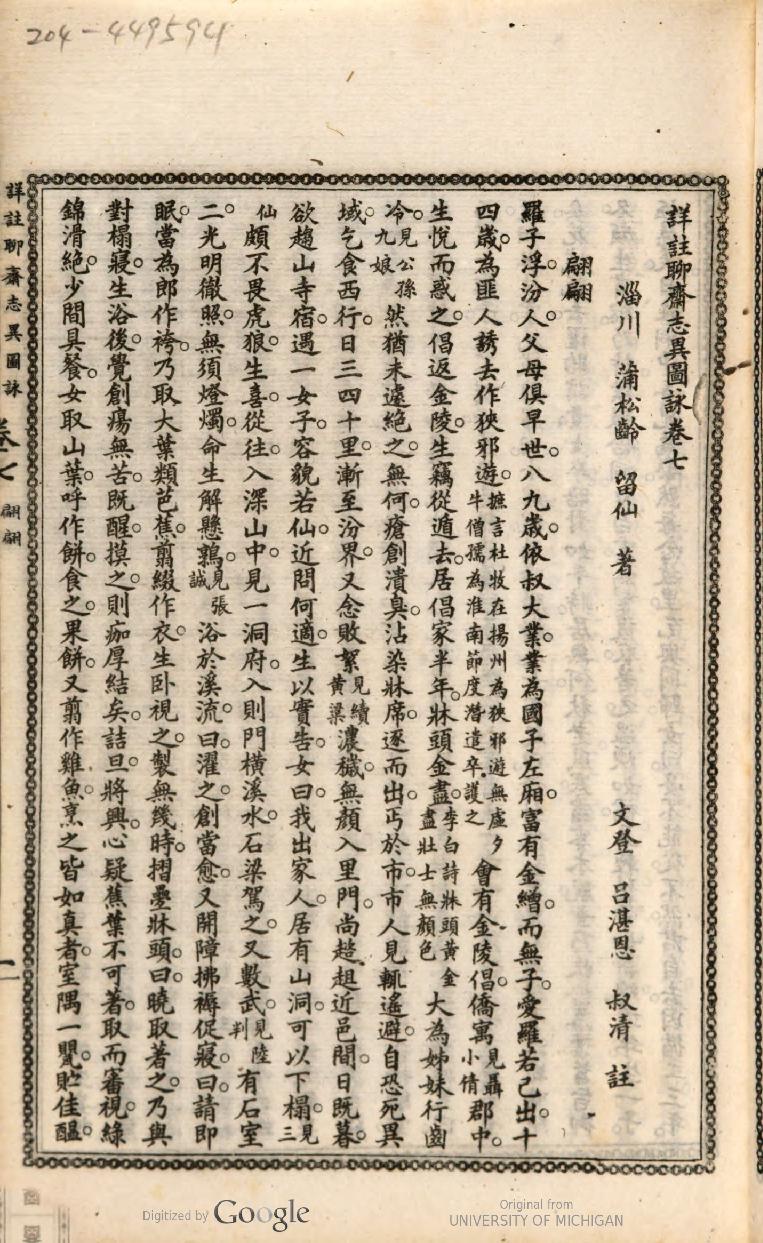 204-449594
詳註聊齋志異圖詠卷七
淄川 蒲松齡 留仙 著 文登 呂湛恩 叔清 註
翩翩
羅子浮汾人父母俱早世八九歲依叔大業業為國子左廂富有金繒而無子愛羅若己出十
四歲為匪人誘去作狹邪遊摭言杜牧在揚州為狹邪遊無虛夕牛僧孺為淮南節度潛遣卒護之會有金陵倡僑寓見聶小倩郡中
生悅而惑之倡返金陵生竊從遁去居倡家半年牀頭金盡李白詩牀頭黃金盡壯士無顏色大為姊妹行齒
冷見公孫九娘然猶未遽絕之無何瘡創潰臭沾染牀席逐而出丐於市市人見輒遙避自恐死異
域乞食西行日三四十里漸至汾界又念敗絮見續黃粱濃穢無顏入里門尚趑趄近邑間日既暮
欲趨山寺宿遇一女子容貌若仙近問何適生以實告女曰我出家人居有山洞可以下榻見三
仙頗不畏虎狼生喜從往入深山中見一洞府入則門橫溪水石梁駕之又數武見陸判有石室
二光明徹照無須燈燭命生解懸鶉見張誠浴於溪流曰濯之創當愈又開障拂褥促寢曰請即
眠當為郎作袴乃取大葉類芭蕉翦綴作衣生卧視之製無幾時摺疊牀頭曰曉取著之乃與
對榻寢生浴後覺創瘍無苦既醒摸之則痂厚結矣詰旦將興心疑蕉葉不可著取而審視綠
錦滑絕少間具餐女取山葉呼作餅食之果餅又翦作雞魚烹之皆如真者室隅一甖貯佳醞
詳註聊齋志異圖詠 卷七 翩翩 一
Digitized by Google
Original from
UNIVERSITY OF MICHIGAN